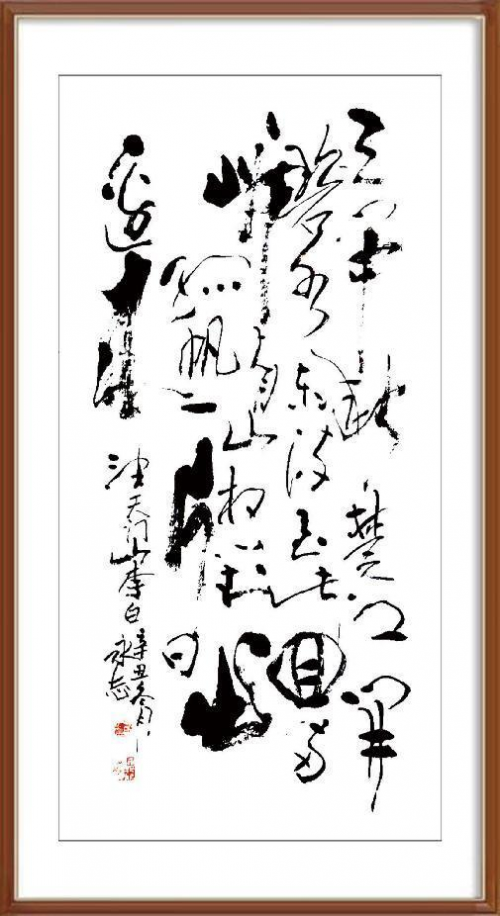 天门中断楚江開
碧水东流至此回两
岸青山相对出
孤帆一片日
边来
望天门山李白
辛丑冬月
永志